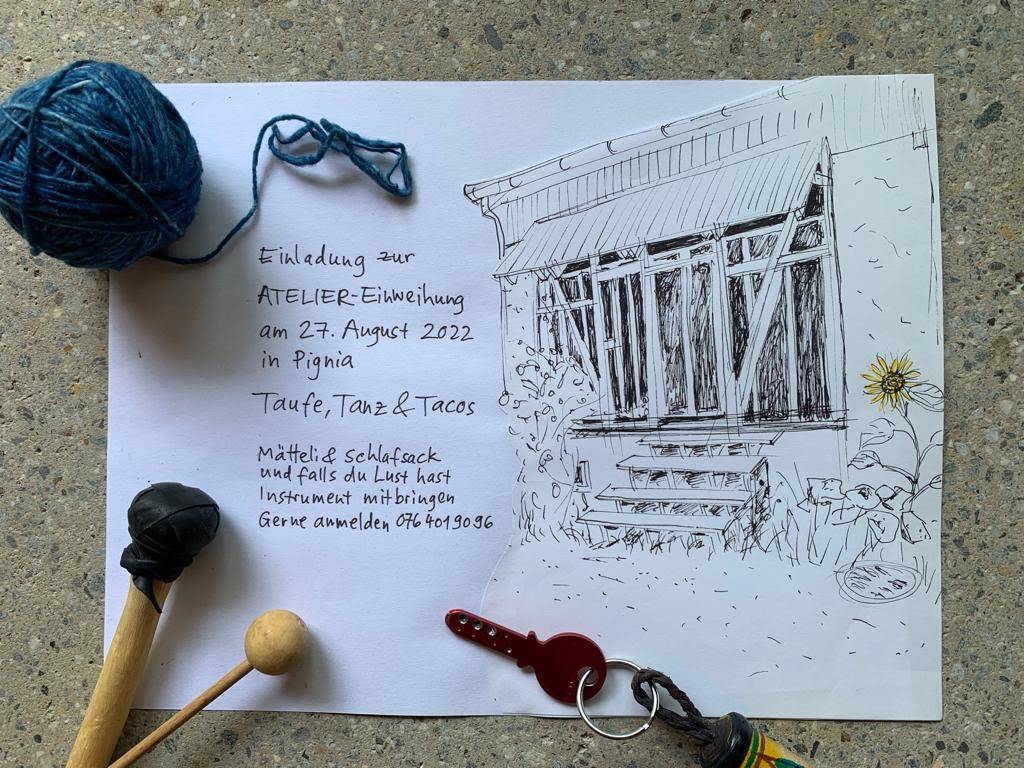 Einladung zur
ATELIER-Einweihung
am 27. August 2022
in Pignia
Taufe, Tanz & Tacos
Mätteli & Schlafsack
und falls du Lust hast
Instrument mitbringen
Gerne anmelden 076 401 90 96